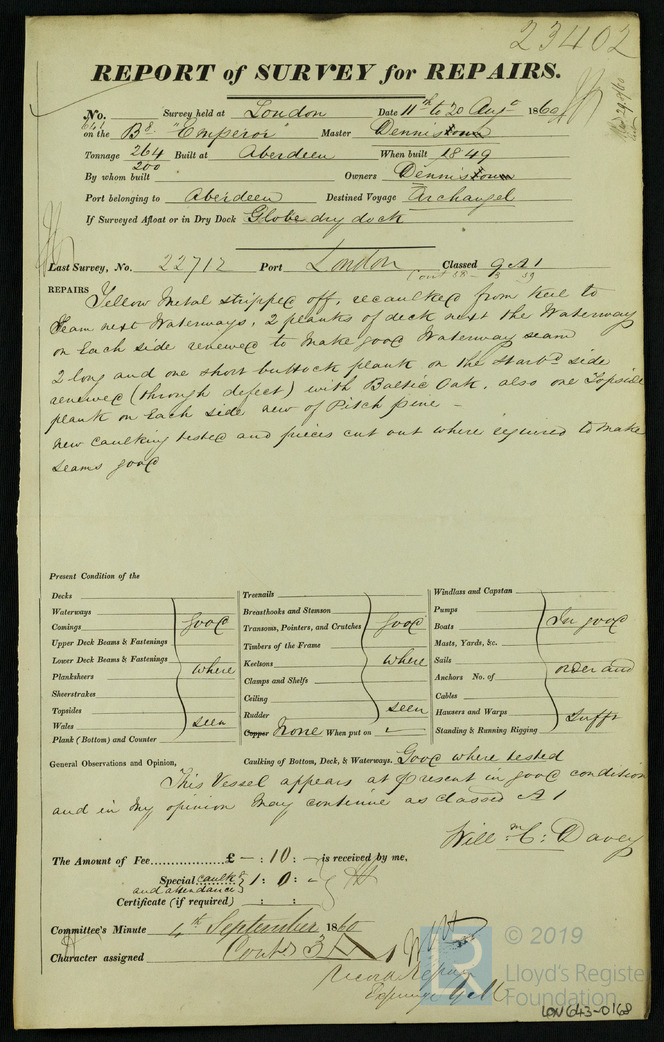 23402
REPORT of SURVEY for REPAIRS.
No. Survey held at London Date 11th to 20 Augt 1860
641
on the Bg "Emperor" Master Dennis
Tonnage 264 Built at Aberdeen When built 1849
200
By whom built Owners Dennis
Port belonging to Aberdeen Destined Voyage Archangel
If Surveyed Afloat or in Dry Dock Globe dry dock
Last Survey, No. 22712 Port London Classed 9 A 1
Cont 58 - 3 59
REPAIRS Yellow Metal stripped off, recaulked from Keel to
seam next Waterways, 2 planks of deck next the Waterway
on Each side renewed to make good Waterway seam
2 long and one short buttock plank on the Starbd side
renewed (through defect) with Baltic Oak, also one Topside
plank on Each side new of Pitch pine -
new caulking tested and pieces cut out where required to make
seams good
Present Condition of the
Decks
Waterways
Comings
Upper Deck Beams & Fastenings
Lower Deck Beams & Fastenings
Planksheers
Sheerstrakes
Topsides
Wales
Plank (Bottom) and Counter
good
where
seen
Treenails
Breasthooks and Stemson
Transoms, Pointers, and Crutches
Timbers of the Frame
Keelsons
Clamps and Shelfs
Ceiling
Rudder
Copper None When put on
good
where
seen
Windlass and Capstan
Pumps
Boats
Masts, Yards, &c.
Sails
Anchors No. of
Cables
Hawsers and Warps
Standing & Running Rigging
In good
order and
Sufft
General Observations and Opinion, Caulking of Bottom, Deck, & Waterways. Good where tested
This Vessel appears at present in good condition
and in my opinion may continue as classed A 1
Willm C: Davey
The Amount of Fee................£ - : 10 : - is received by me,
Special caulkg 1 : 0 : -
and attendance
Certificate (if required) : :
Committee's Minute 4th September 1860
Character assigned Contd 3
record Repair
Expunge YM
© 2019
Lloyd's Register
Foundation
LON643-0168